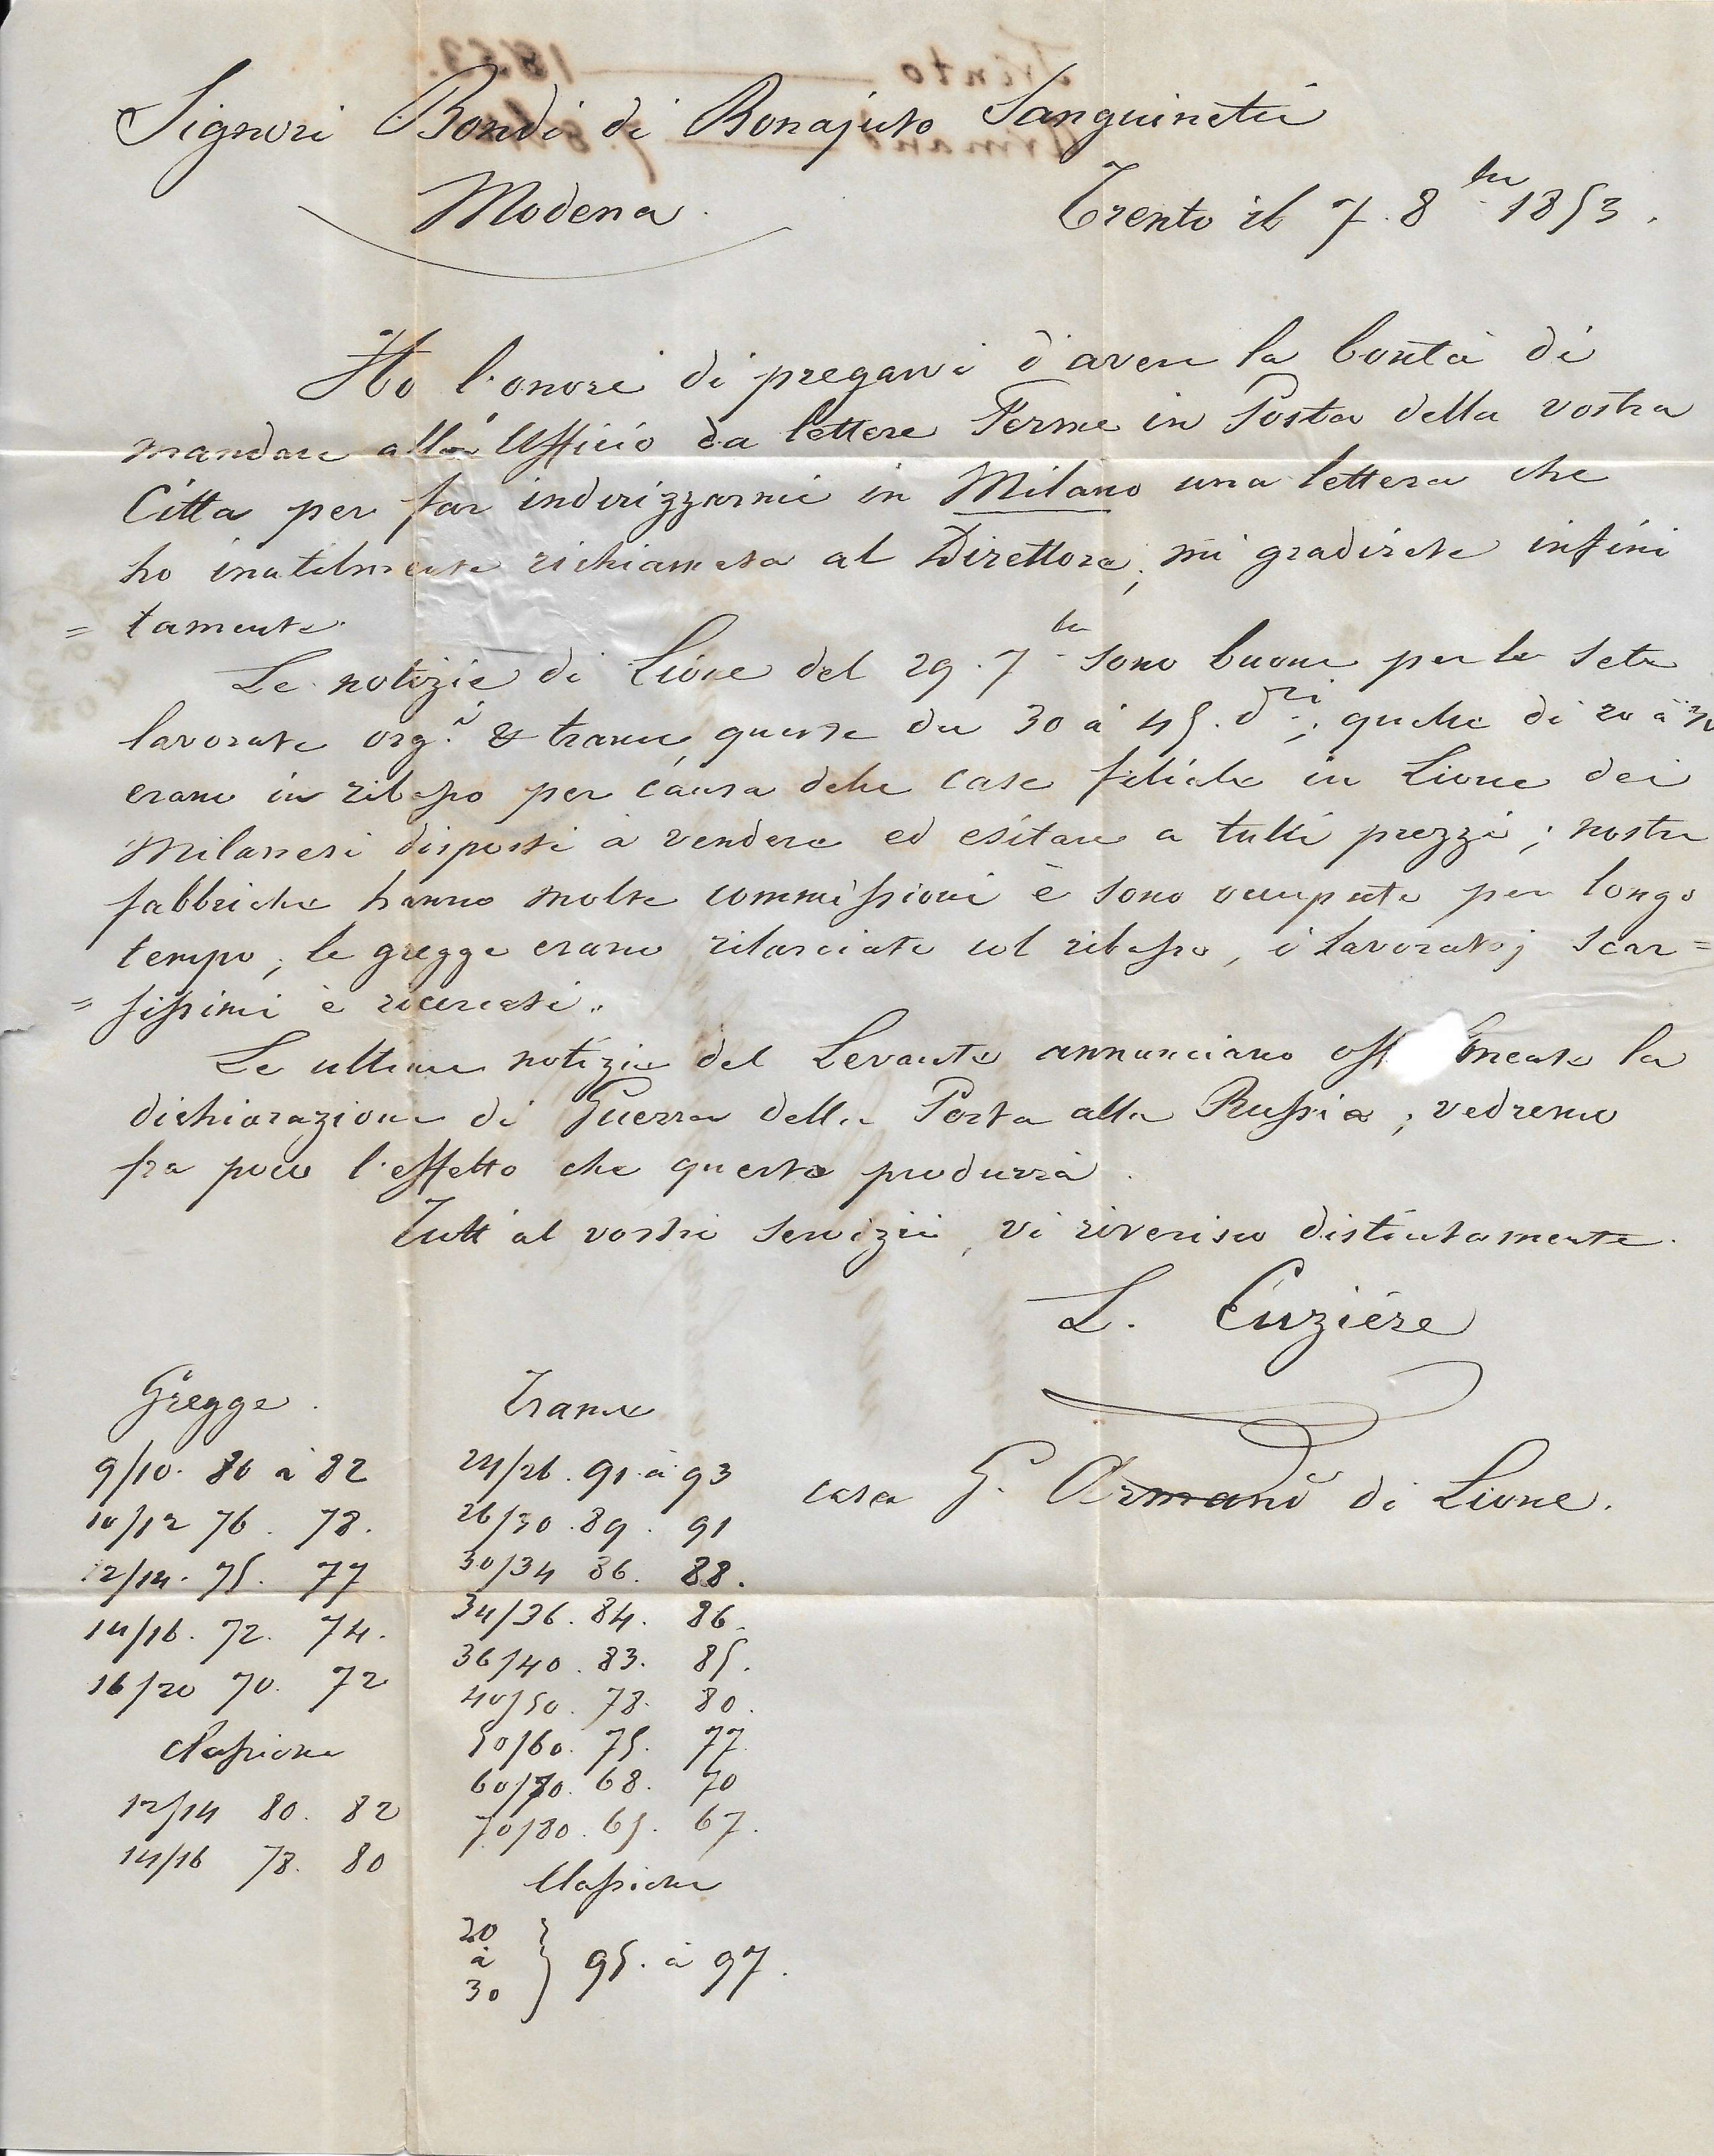 Signori Bondi di Bonajuto Sanguinetti
Modena.
Trento il 7. 8bre 1853.
Ho l'onore di pregarvi d'avere la bontà di
mandare all' Ufficio da lettere Ferme in Posta della vostra
Citta per far indirizzarmi in Milano una lettera che
ho inutilmente richiamata al Direttore; mi gradirete infini
= tamente.
Le notizie di Lione del 29. 7bre sono buone per le sete
lavorate org.i & trame, queste da 30 à 45. dri; quelle di 20 à 30
erano in ribasso per causa delle case filiale in Lione dei
Milanesi disposti à vendere ed esitare a tutti prezzi; nostre
fabbriche hanno molte commissioni è sono occupate per longo
tempo; le gregge erano rilasciate col ribasso, i lavoratoj scar=
= sissimi è ricercati.
Le ultime notizie del Levante annunciano la
dichiarazione di Guerra della Porta alla Russia; vedremo
fra poco l'effetto che questa produrrà.
Tutt' al vostri servizii, vi riverisco distintamente.
L. Cuzière
casa G. Armand di Lione.
Gregge.
9/10. 80 à 82
10/12 76. 78.
12/14. 75. 77
14/16. 72. 74.
16/20 70. 72
Classione
12/14 80. 82
14/16 78. 80
Trame
24/26. 91. à 93
26/30. 89. 91
30/34 86. 88.
34/36. 84. 86.
36/40. 83. 85.
40/50. 78. 80.
50/60. 75. 77
60/70. 68. 70
70/80. 65. 67.
Classione
20
à } 95. à 97.
30